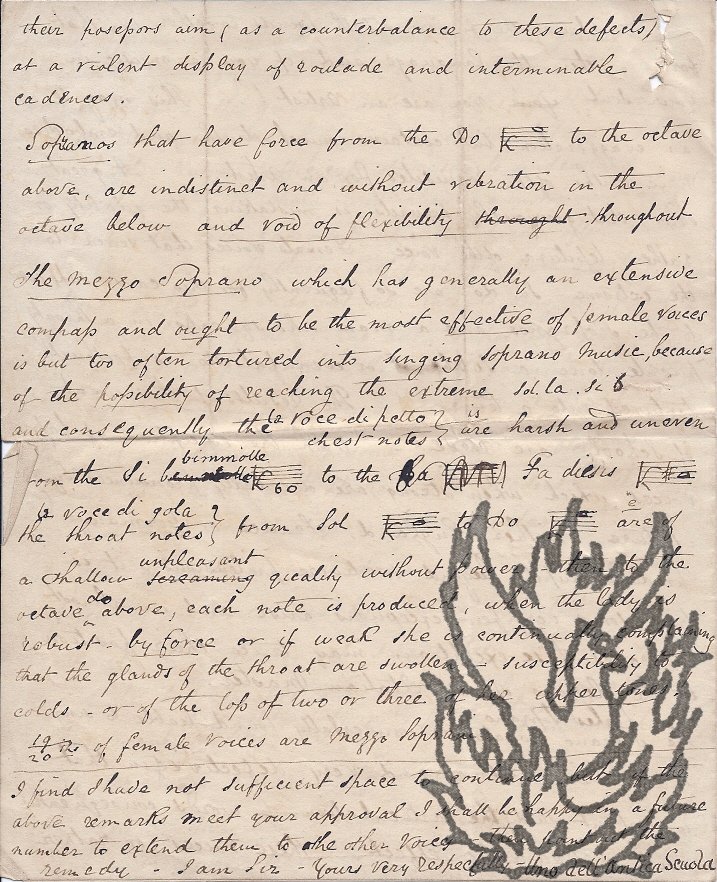 their possessors aim (as a counterbalance to these defects)
at a violent display of roulade and interminable
cadences.
Sopranos that have force from the Do to the octave
above, are indistinct and without vibration in the
octave below and void of flexibility throught throughout
The Mezzo Soprano which has generally an extensive
compass and ought to be the most effective of female voices
is but too often tortured into singing soprano music, because
of the possibility of reaching the extreme sol. la. si b
and consequently the la voce di petto is
chest notes are harsh and uneven
bimmolle
from the Si to the Fa diesis
la voce di gola
the throat notes from Sol to Do are of
unpleasant
a shallow screaming quality without power - then to the
octave do above, each note is produced, when the lady is
robust - by force or if weak she is continually complaining
that the glands of the throat are swollen - susceptibility to
colds - or of the loss of two or three of her upper tones.
19/20 ths of female voices are Mezzo Soprani
I find I have not sufficient space to continue but if the
above remarks meet your approval I shall be happy in a future
number to extend them to the other voices then the
remedy - I am Sir - Yours very respectfully - Uno dell'Antica Scuola